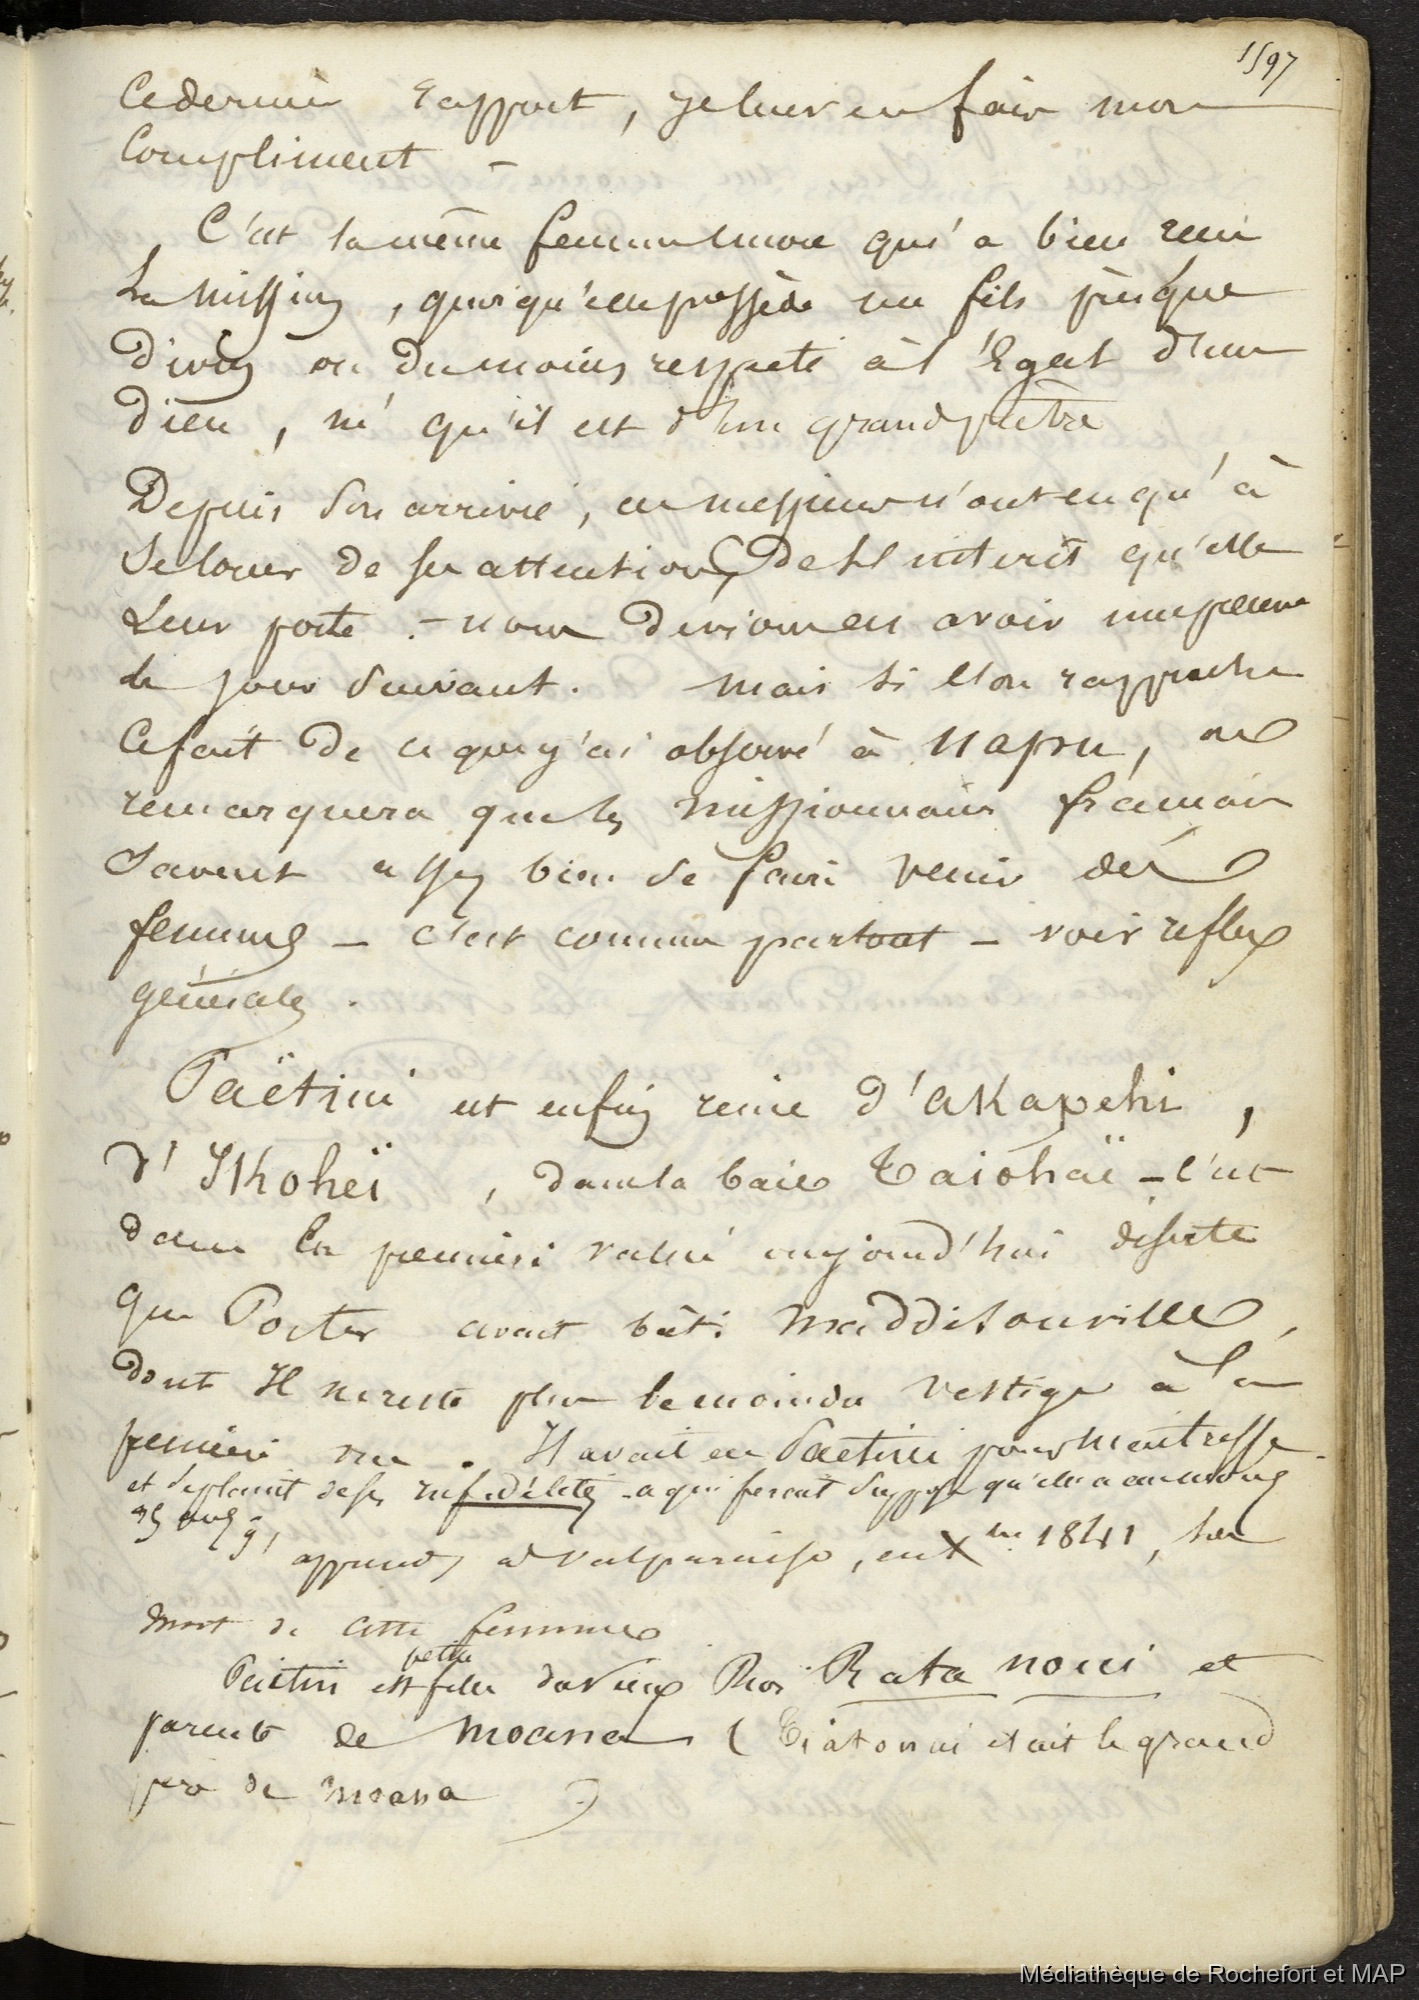 1597
ce dernier rapport, je leur en fais mon
compliment –
C'est la même femme encore qui a bien reçu
la mission, quoiqu'elle possède un fils presque
divin ou du moins respecté à l'Egal d'un
dieu, né qu'il est d'un grand prêtre
Depuis son arrivée, ces messieurs n'ont eu qu'à
se louer de ses attentions, de l'intérêt qu'elle
leur porte. – nous devions en avoir une preuve
le jour suivant. mais si l'on rapproche
ce fait de ce que j'ai observé à Napou, on
remarquera que les missionnaires français
savent assez bien se faire venir des
femmes – c'est comme partout – voir reflex
générales.
Paëtini est enfin reine d'akapehi,
d'Ikoheï, dans la baie Taiohaë – c'est
dans la première vallée aujourd'hui déserte
que Porter avait bâti Maddisonville,
dont Il ne reste plus le moindre vestige à la
première vue. Il avait eu Paetini pour maitresse
et se plaint de ses infidélités – ce qui ferait supposer qu'elle a au moins
appris à valparaiso, en Xbre 1841, la
mort de cette femme
Paëtini est petite fille du vieux Roi Rata noui et
parente de Moana (Tiatonoui était le grand
père de Moana)
Médiathèque de Rochefort et MAP